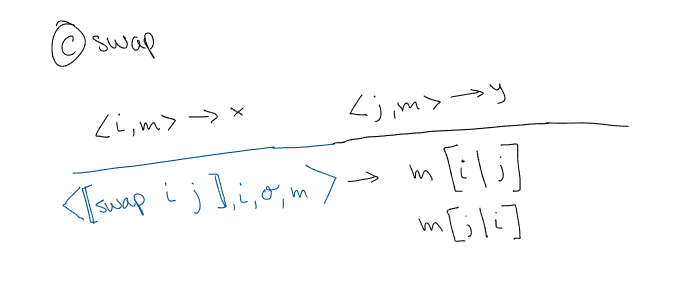 Ⓒ swap
<i,m> → x <j,m> → y
<⟦swap i j⟧,i,σ,m> → m[i|j]
m[j|i]